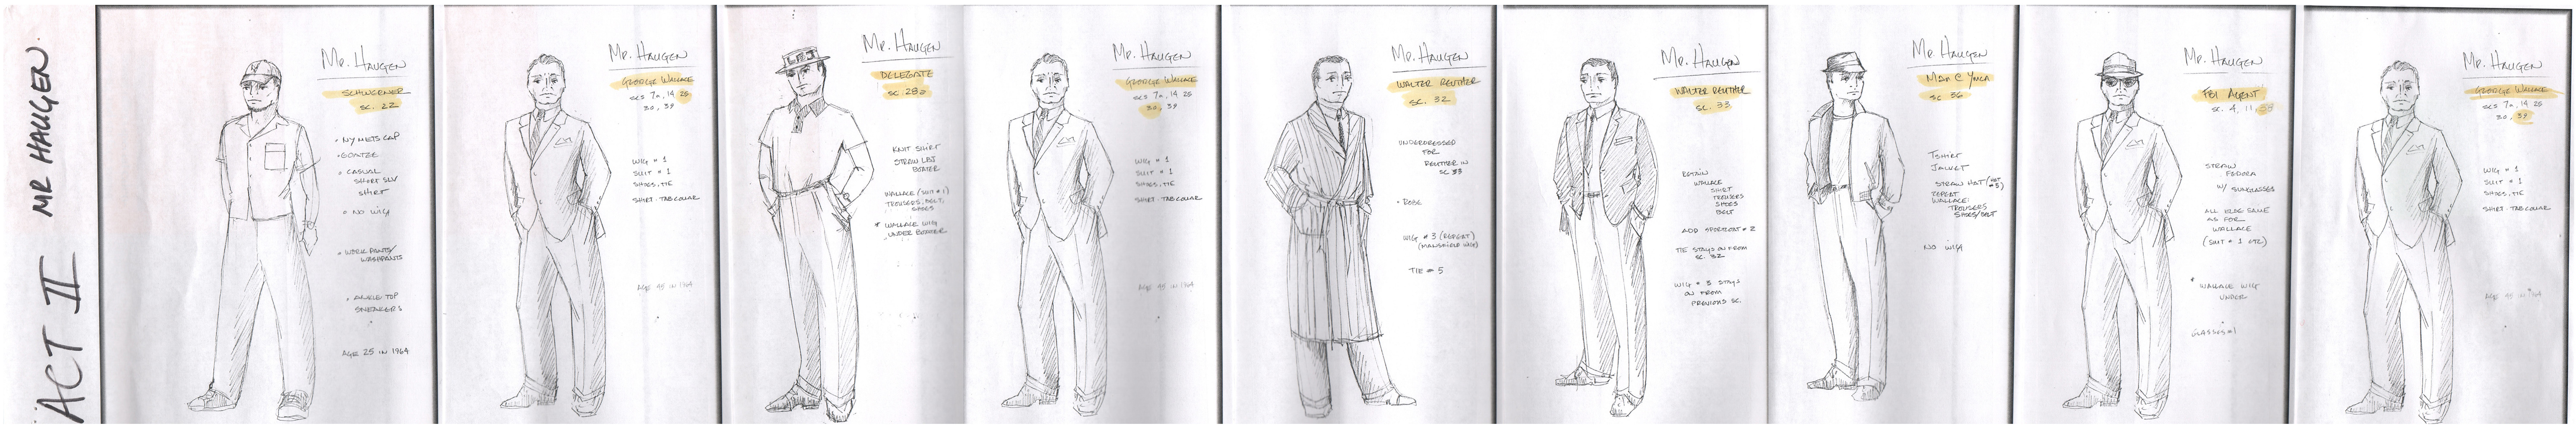 ACT II MR HAUGEN.
Mr. HAUGEN
SCHWERNER
SC. 22
• NY METS CAP
• GOATEE
• CASUAL
SHORT SLV
SHIRT
• NO WIG
• WORK PANTS/
WASHPANTS
• ANKLE TOP
SNEAKERS
AGE 25 IN 1964
Mr. HAUGEN
GEORGE WALLACE
SCS 7a, 14 25
30, 39
WIG # 1
SUIT # 1
SHOES, TIE
SHIRT: TAB COLLAR
AGE 45 IN 1964
Mr. HAUGEN
DELEGATE
SC. 28a
KNIT SHIRT
STRAW LBJ
BOATER
WALLACE (SUIT #1)
TROUSERS, BELT,
SHOES
* WALLACE WIG
UNDER BOATER
Mr. HAUGEN
GEORGE WALLACE
SCS 7a, 14 25
30, 39
WIG # 1
SUIT # 1
SHOES, TIE
SHIRT: TAB COLLAR
AGE 45 IN 1964
Mr. HAUGEN
WALTER REUTHER
SC. 32
UNDERDRESSED
FOR
REUTHER IN
SC 33
• ROBE
WIG # 3 (REPEAT)
(MANSFIELD WIG)
TIE # 5
Mr. HAUGEN
WALTER REUTHER
SC. 33
RETAIN
WALLACE
SHIRT
TROUSERS
SHOES
BELT
ADD SPORTCOAT # 2
TIE STAYS ON FROM
SC. 32
WIG # 3 STAYS
ON FROM
PREVIOUS SC.
Mr. HAUGEN
MAN @ YMCA
SC 36
TSHIRT
JACKET
STRAW HAT (HAT
#3)
REPEAT
WALLACE
TROUSERS
SHOES/BELT
NO WIG
Mr. HAUGEN
FBI AGENT
SC. 4, 11, 38
STRAW
FEDORA
W/ SUNGLASSES
ALL ELSE SAME
AS FOR
WALLACE
(SUIT # 1 ETC)
* WALLACE WIG
UNDER
GLASSES #1
Mr. HAUGEN
GEORGE WALLACE
SCS 7a, 14 25
30, 39
WIG # 1
SUIT # 1
SHOES, TIE
SHIRT: TAB COLLAR
AGE 45 IN 1964